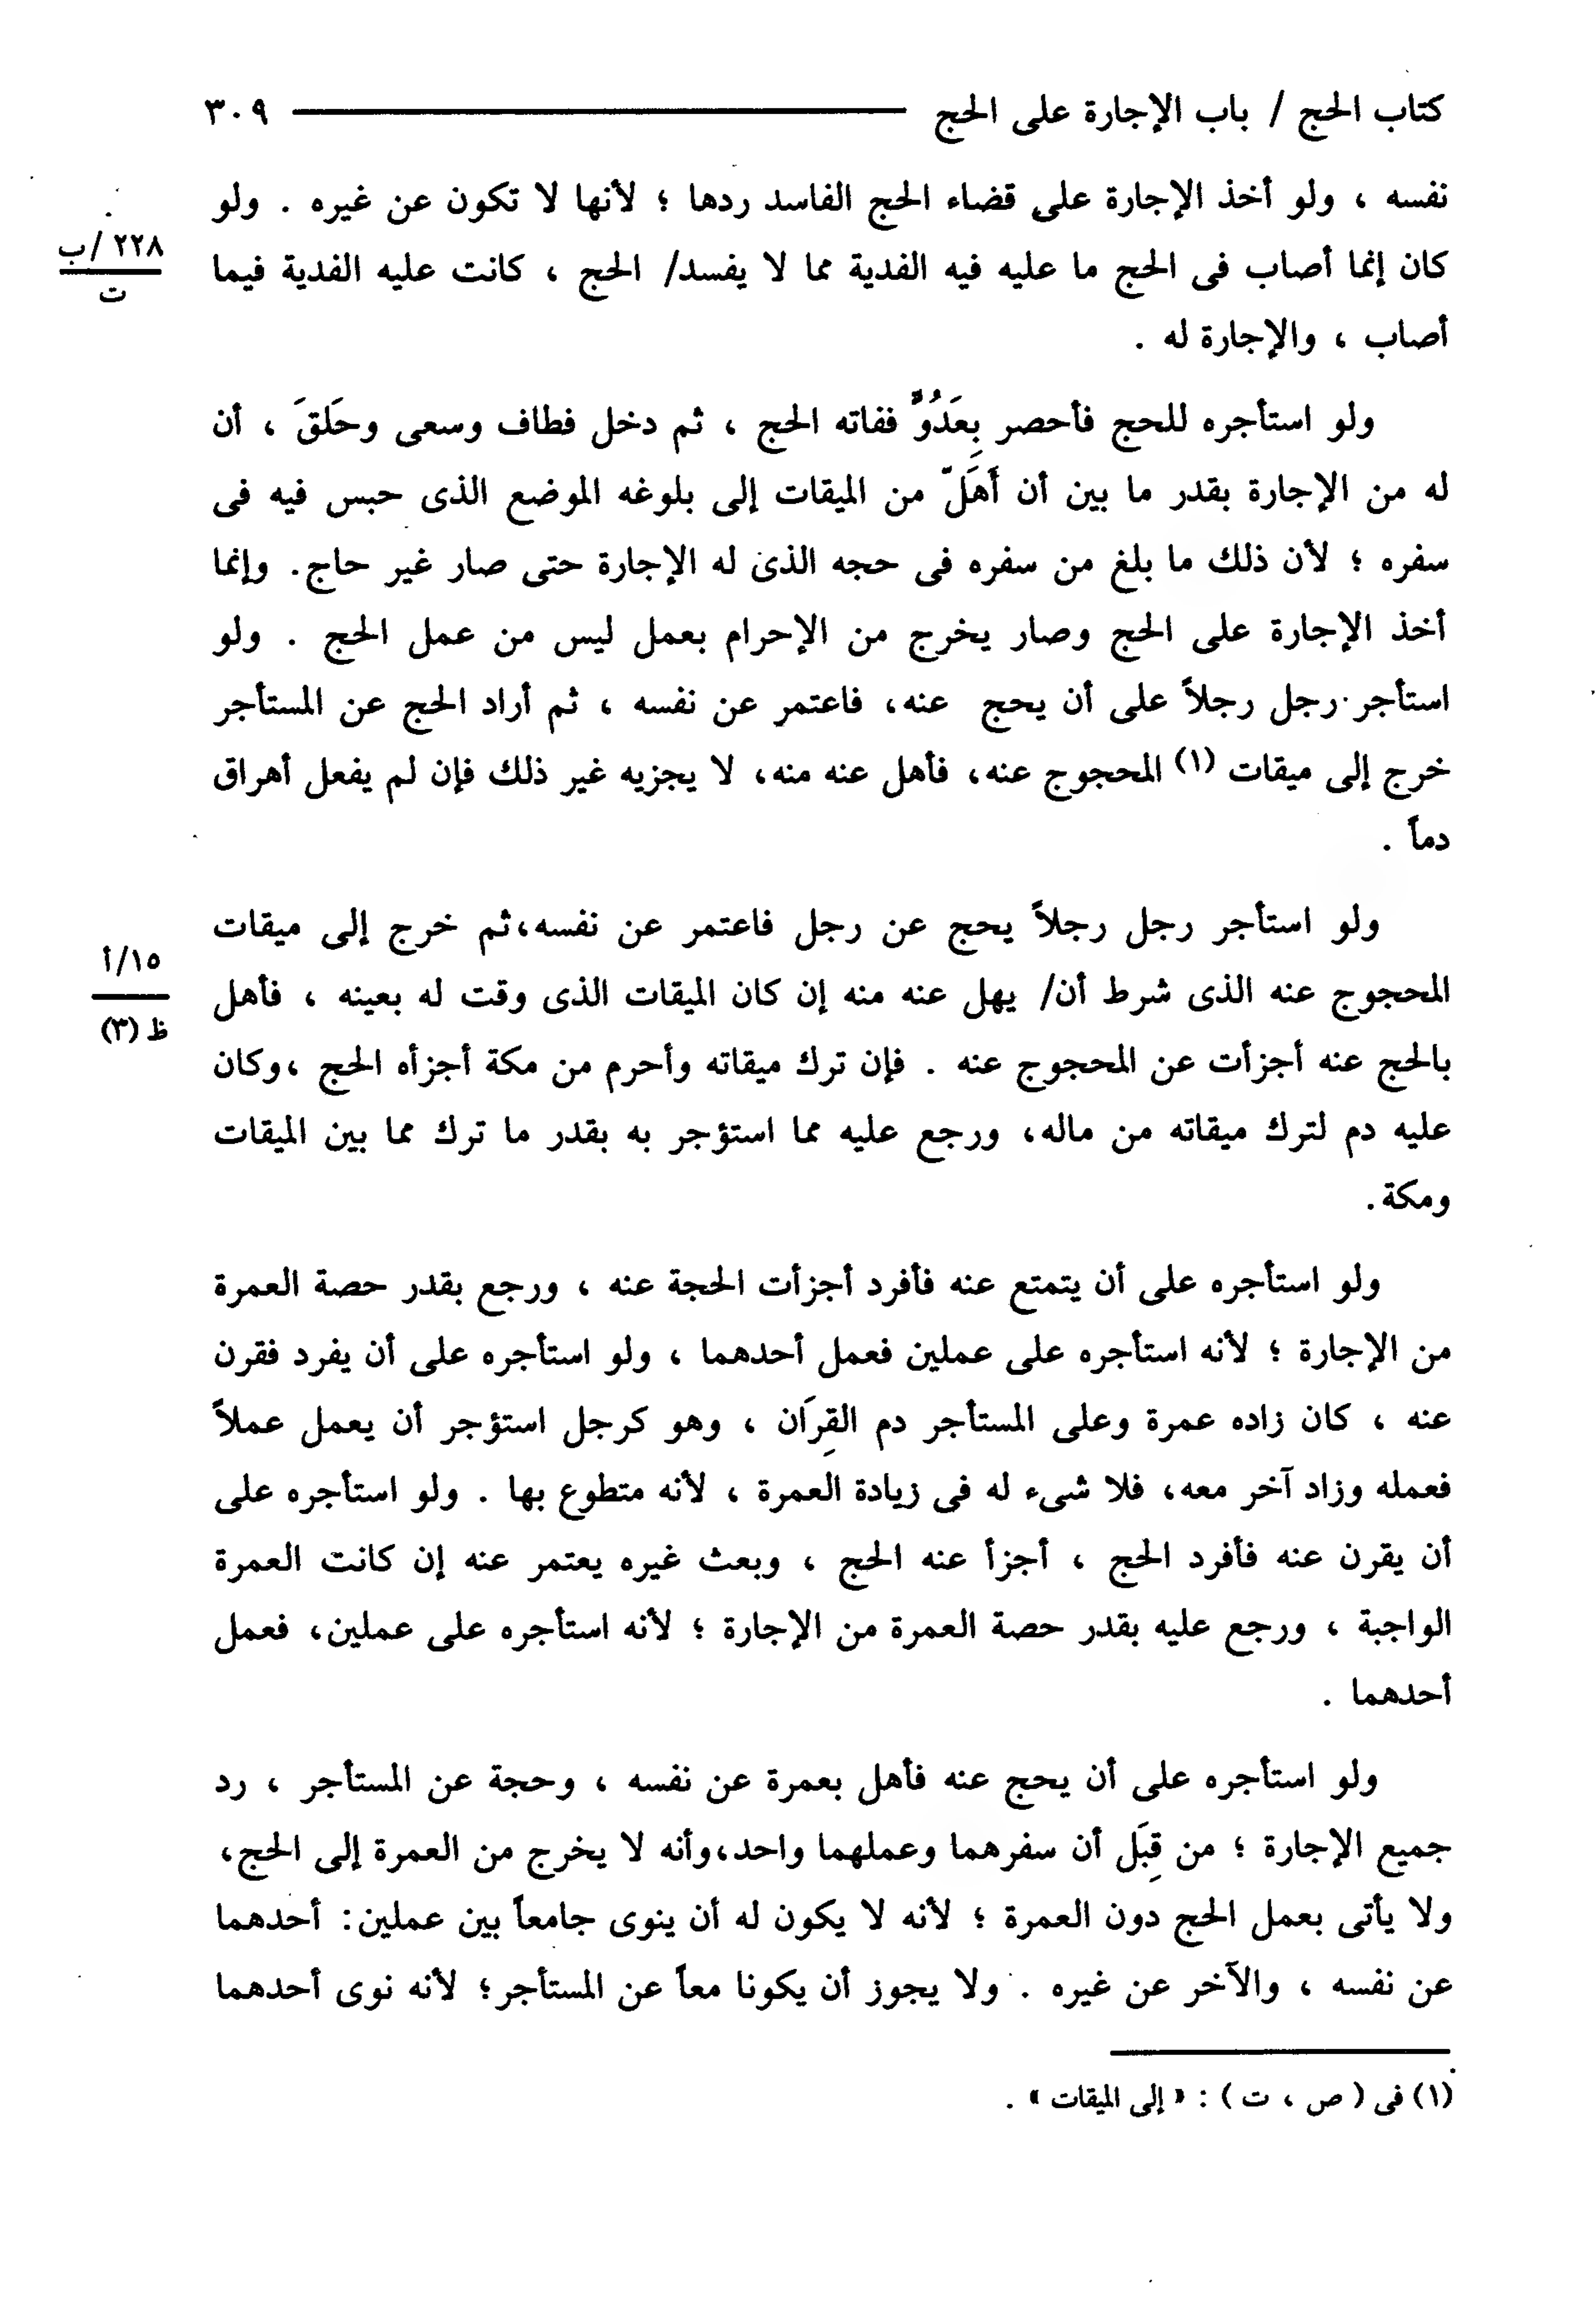 كتاب الحج / باب الإجارة على الحج ٣٠٩
نفسه ، ولو أخذ الإجارة على قضاء الحج الفاسد ردها ؛ لأنها لا تكون عن غيره . ولو
٢٢٨ /ب
ت
كان إنما أصاب فى الحج ما عليه فيه الفدية مما لا يفسد/ الحج ، كانت عليه الفدية فيما
أصاب ، والإجارة له .
ولو استأجره للحج فأحصر بِعَدُوٍّ ففاته الحج ، ثم دخل فطاف وسعى وحَلَقَ ، أن
له من الإجارة بقدر ما بين أن أَهَلّ من الميقات إلى بلوغه الموضع الذى حبس فيه فى
سفره ؛ لأن ذلك ما بلغ من سفره فى حجه الذى له الإجارة حتى صار غير حاج. وإنما
أخذ الإجارة على الحج وصار يخرج من الإحرام بعمل ليس من عمل الحج . ولو
استأجر رجل رجلاً على أن يحج عنه، فاعتمر عن نفسه ، ثم أراد الحج عن المستأجر
خرج إلى ميقات (١) المحجوج عنه، فأهل عنه منه، لا يجزيه غير ذلك فإن لم يفعل أهراق
دماً .
ولو استأجر رجل رجلاً يحج عن رجل فاعتمر عن نفسه،ثم خرج إلى ميقات
١٥/أ
ظ (٣)
المحجوج عنه الذى شرط أن/ يهل عنه منه إن كان الميقات الذى وقت له بعينه ، فأهل
بالحج عنه أجزأت عن المحجوج عنه . فإن ترك ميقاته وأحرم من مكة أجزأه الحج ،وكان
عليه دم لترك ميقاته من ماله، ورجع عليه مما استؤجر به بقدر ما ترك مما بين الميقات
ومكة.
ولو استأجره على أن يتمتع عنه فأفرد أجزأت الحجة عنه ، ورجع بقدر حصة العمرة
من الإجارة ؛ لأنه استأجره على عملين فعمل أحدهما ، ولو استأجره على أن يفرد فقرن
عنه ، كان زاده عمرة وعلى المستأجر دم القِرَان ، وهو كرجل استؤجر أن يعمل عملاً
فعمله وزاد آخر معه، فلا شىء له فى زيادة العمرة ، لأنه متطوع بها . ولو استأجره على
أن يقرن عنه فأفرد الحج ، أجزأ عنه الحج ، وبعث غيره يعتمر عنه إن كانت العمرة
الواجبة ، ورجع عليه بقدر حصة العمرة من الإجارة ؛ لأنه استأجره على عملين، فعمل
أحدهما .
ولو استأجره على أن يحج عنه فأهل بعمرة عن نفسه ، وحجة عن المستأجر ، رد
جميع الإجارة ؛ من قِبَل أن سفرهما وعملهما واحد،وأنه لا يخرج من العمرة إلى الحج،
ولا يأتى بعمل الحج دون العمرة ؛ لأنه لا يكون له أن ينوى جامعاً بين عملين: أحدهما
عن نفسه ، والآخر عن غيره . ولا يجوز أن يكونا معاً عن المستأجر؛ لأنه نوى أحدهما
(١) فى ( ص ، ت ) : « إلى الميقات » .